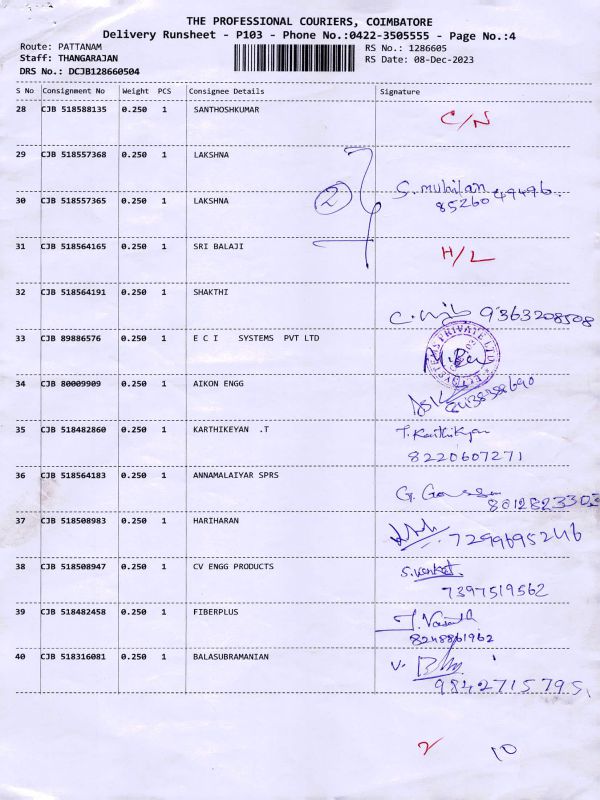 THE PROFESSIONAL COURIERS, COIMBATORE
Delivery Runsheet - P103 - Phone No.:0422-3505555 - Page No.:4
Route: PATTANAM RS No.: 1286605
Staff: THANGARAJAN RS Date: 08-Dec-2023
DRS No.: DCJB128660504
S No Consignment No Weight PCS Consignee Details Signature
28 CJB 518588135 0.250 1 SANTHOSHKUMAR C/N
29 CJB 518557368 0.250 1 LAKSHNA
2
S. muhilan
30 CJB 518557365 0.250 1 LAKSHNA 85260 49496
31 CJB 518564165 0.250 1 SRI BALAJI H/L
32 CJB 518564191 0.250 1 SHAKTHI 9363208508
33 CJB 89886576 0.250 1 E C I SYSTEMS PVT LTD
34 CJB 80009909 0.250 1 AIKON ENGG
35 CJB 518482860 0.250 1 KARTHIKEYAN .T T. Karthikyan
8220607271
36 CJB 518564183 0.250 1 ANNAMALAIYAR SPRS
8012823303
37 CJB 518508983 0.250 1 HARIHARAN 7299695246
38 CJB 518508947 0.250 1 CV ENGG PRODUCTS S. Venkat.
7397519562
39 CJB 518482458 0.250 1 FIBERPLUS
8248861962
40 CJB 518316081 0.250 1 BALASUBRAMANIAN V.
9842715795
2 10